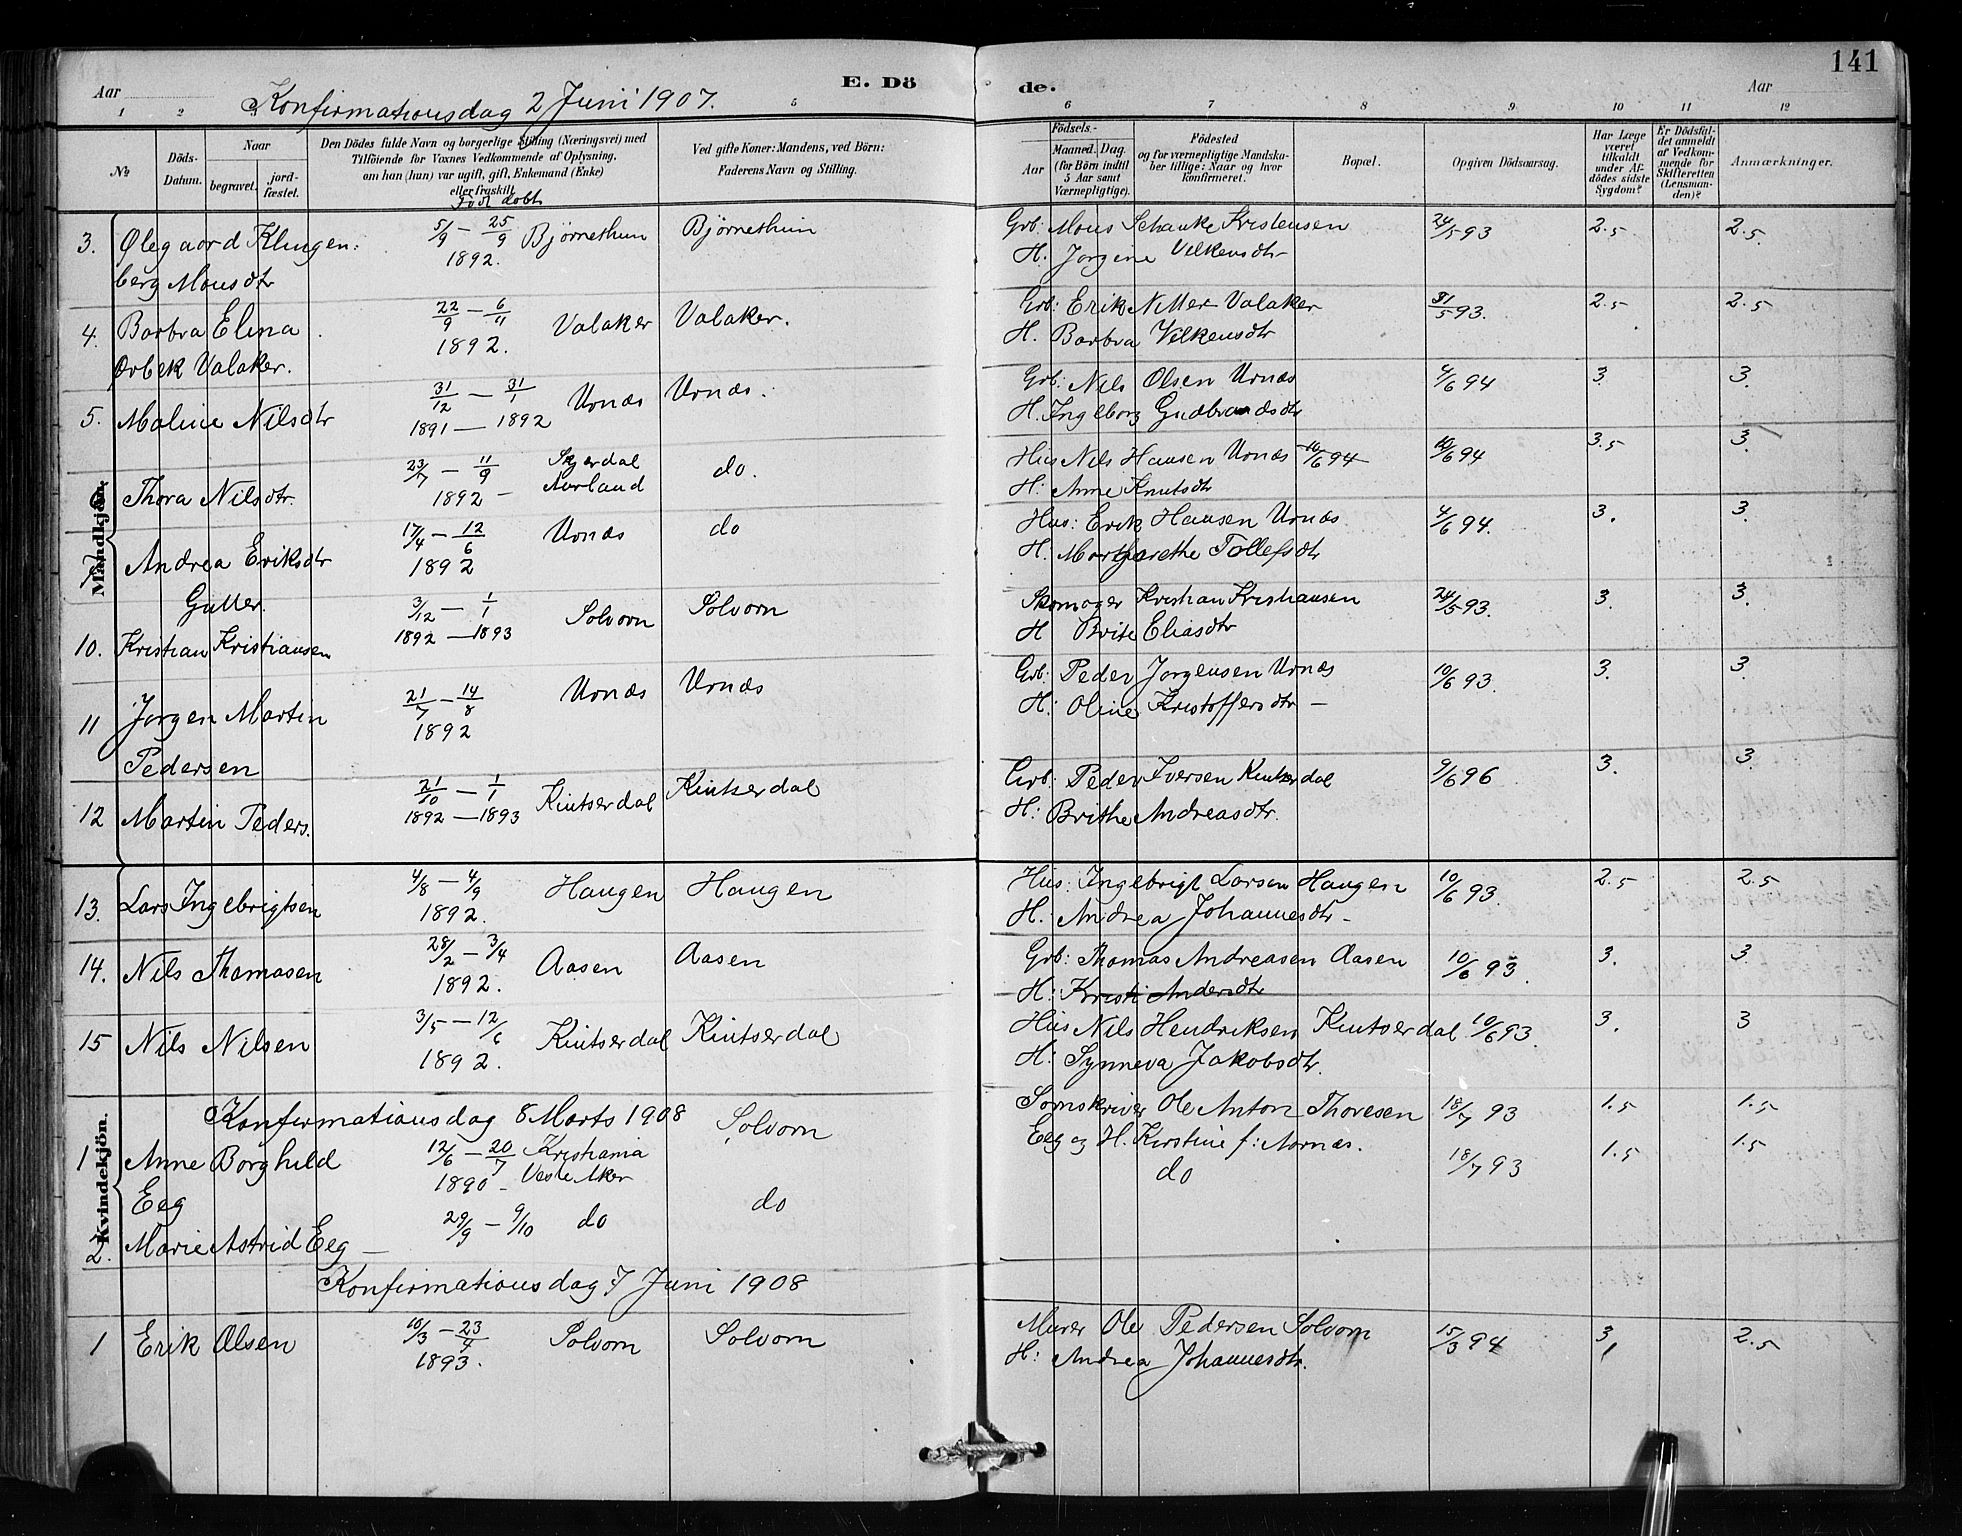 141
E. Dö
de.
Aar
Aar
Konfirmationsdag 2 Juni 1907.
1 2 3 5 6 7 8 9 10 11 12
№
Döds-Datum.
Naar
begravet.
jord-fæstet.
Den Dödes fulde Navn og borgerlige Stilling (Næringsvei) med
Tilföiende for Voxnes Vedkommende af Oplysning,
om han (hun) var ugift, gift, Enkemand (Enke)
eller fraskilt.
Ved gifte Koner: Mandens, ved Börn:
Faderens Navn og Stilling.
Aar
Födsels-
Maaned. Dag.
(for Börn indtil
5 Aar samt
Værnepligtige).
Födested
og for værnepligtige Mandska-
ber tillige: Naar og hvor
konfirmeret.
Bopæl.
Opgiven Dödsaarsag.
Har Læge
været
tilkaldt
under Af-
dödes sidste
Sygdom?
Er Dödsfal-
det anmeldt
af Vedkom-
mende for
Skifteretten
(Lensman-
den)?
Anmærkninger.
Född döbt
Mandkjön.
3. Ølegaard Klingen: 5/9 — 25/9 Bjørnethun Bjørnethun Grb: Mons Schanke Kristensen 24/5 93 2.5 2.5.
berg Monsdtr 1892. H. Jorgine Velkensdtr
4. Barbra Elina 22/9 — 6/11 Valaker Valaker. Grb: Erik Nitter Valaker 31/5 93. 2.5 2.5
Ørbek Valaker. 1892. H. Barbra Vilkensdtr
5. Maline Nilsdtr 31/12 — 31/1 Urnæs Urnæs. Grb: Nils Olsen Urnæs 4/6 94 3. 3.
1891 — 1892 H. Ingeborg Gudbrandsdtr
6. Thora Nilsdtr. 23/7 — 11/9 Skjerdal do. Hus Nils Hansen Urnæs 10/6 94 10/6 94 3.5 3.
1892 — Aurland H: Anne Knutsdtr
7. Andrea Eriksdtr 17/4 — 12/6 Urnæs do Hus: Erik Hansen Urnæs 4/6 94. 3. 3.
1892 H. Margarethe Tollefsdtr
Gutter.
10. Kristian Kristiansen 3/12 — 1/1 Solvorn Solvorn Skomager Kristian Kristiansen 24/5 93. 3. 3.
1892 — 1893 H Brite Eliasdtr
11 Jørgen Martin 21/7 — 14/8 Urnæs Urnæs Grb: Peder Jørgensen Urnæs 10/6 93. 3. 3.
Pedersen 1892 H: Oline Kristoffersdtr —
12 Martin Peders. 21/10 — 1/1 Kintserdal Kintserdal Grb: Peder Iversen Kintserdal 9/6 96 3. 3
1892 — 1893 H: Brithe Andreasdtr.
13. Lars Ingebrigtsen 4/8 — 4/9 Haugen Haugen Hus: Ingebrigt Larsen Haugen 10/6 93. 2.5 2.5
1892. H. Andrea Johannesdtr —
14. Nils Thomasen 28/2 — 3/4 Aasen Aasen Grb: Thomas Andreasen Aasen 10/6 93. 3. 3.
1892. H: Kristi Andersdtr
15 Nils Nilsen 3/5 — 12/6 Kintserdal Kintserdal Hus Nils Hendriksen Kintserdal 10/6 93. 3. 3
1892. H: Synneva Jakobsdtr.
Kvindekjön.
Konfirmationsdag 8 Marts 1908
1 Anne Borghild 12/6 — 20/7 Kristiania Solvorn Sornskriver Ole Anton Thoresen 18/7 93 1.5 1.5
Eeg 1890 — Vestre Aker Eeg og H. Kirstine f: Aornæs.
2. Marie Astrid Eeg — 29/9 — 9/10 do do do 18/7 93 1.5 1.5
Konfirmationsdag 7 Juni 1908
1 Erik Olsen 10/3 — 23/4 Solvorn Solvorn Murer Ole Pedersen Solvorn 15/3 94 3 2.5
1893. H: Andrea Johannesdtr.